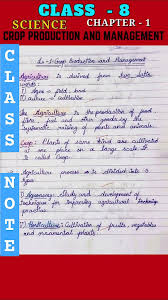 CLASS - 8
SCIENCE CHAPTER - 1
CROP PRODUCTION AND MANAGEMENT
CLASS NOTE
Ls-1:Crop Production and Management
Agriculture is derived from two latin words:-
1) Agros = field, land
2) culture = cultivation
The Agriculture is the production of food and other goods by the systematic raising of plants and animals.
Crop: Plants of same kind are cultivated at one place on a large scale is called crop.
Agriculture process is divided into types
1) Agronomy: study and development of technique for improving agricultural practice
2) Horticulture: Cultivation of fruits, vegetables and ornamental plants